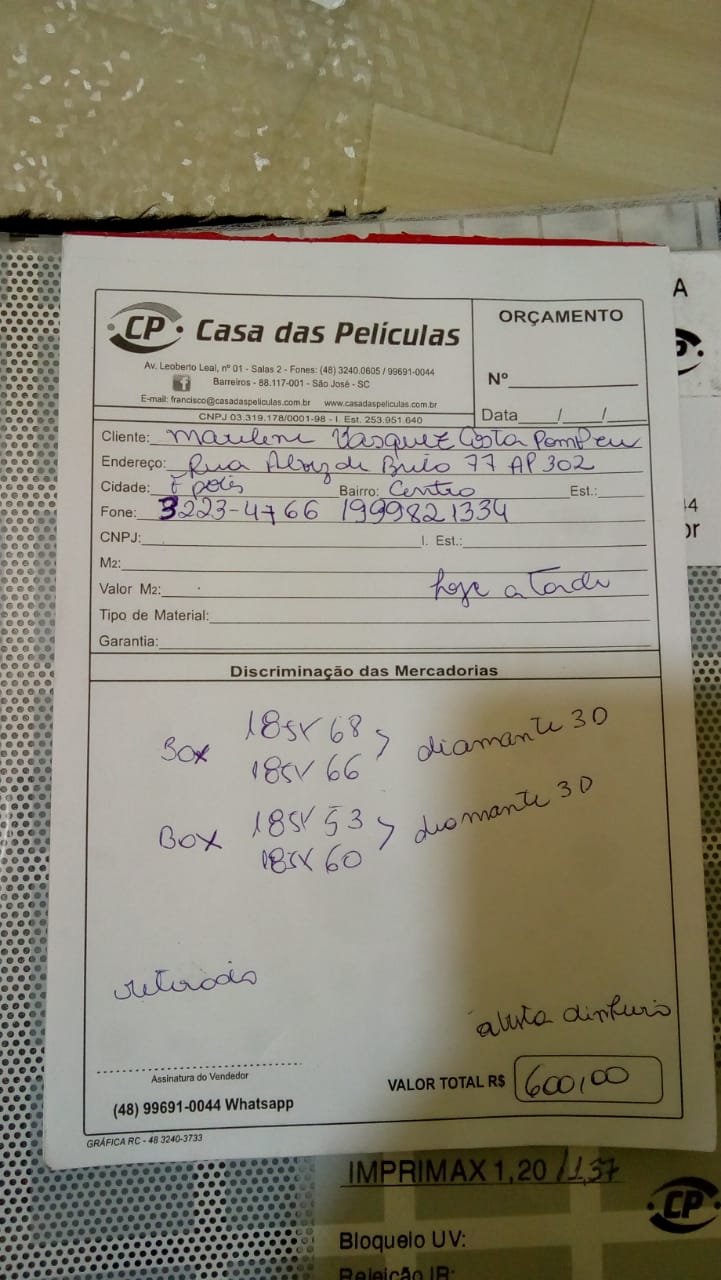 CP Casa das Películas
ORÇAMENTO
Av. Leoberto Leal, nº 01 - Salas 2 - Fones: (48) 3240.0605 / 99691-0044
Barreiros - 88.117-001 - São José - SC
E-mail: francisco@casadaspeliculas.com.br www.casadaspeliculas.com.br
CNPJ 03.319.178/0001-98 - I. Est. 253.951.640
Nº
Data / /
A
Cliente: Vasquez Costa Pompeu
Endereço: Rua de 77 AP 302
Cidade: Fpolis Bairro: Centro Est.:
Fone: 3223-4766 1999821334
CNPJ: I. Est.:
M2:
Valor M2: hoje a tarde
Tipo de Material:
Garantia:
Discriminação das Mercadorias
Box 185X68 > diamante 3D
185X66
Box 185X53 > diamante 3D
185X60
avista dinheiro
Assinatura do Vendedor
VALOR TOTAL R$ 600,00
(48) 99691-0044 Whatsapp
GRÁFICA RC - 48 3240-3733
IMPRIMAX 1,20 /1,37
CP
Bloqueio UV:
Rejeição IR: